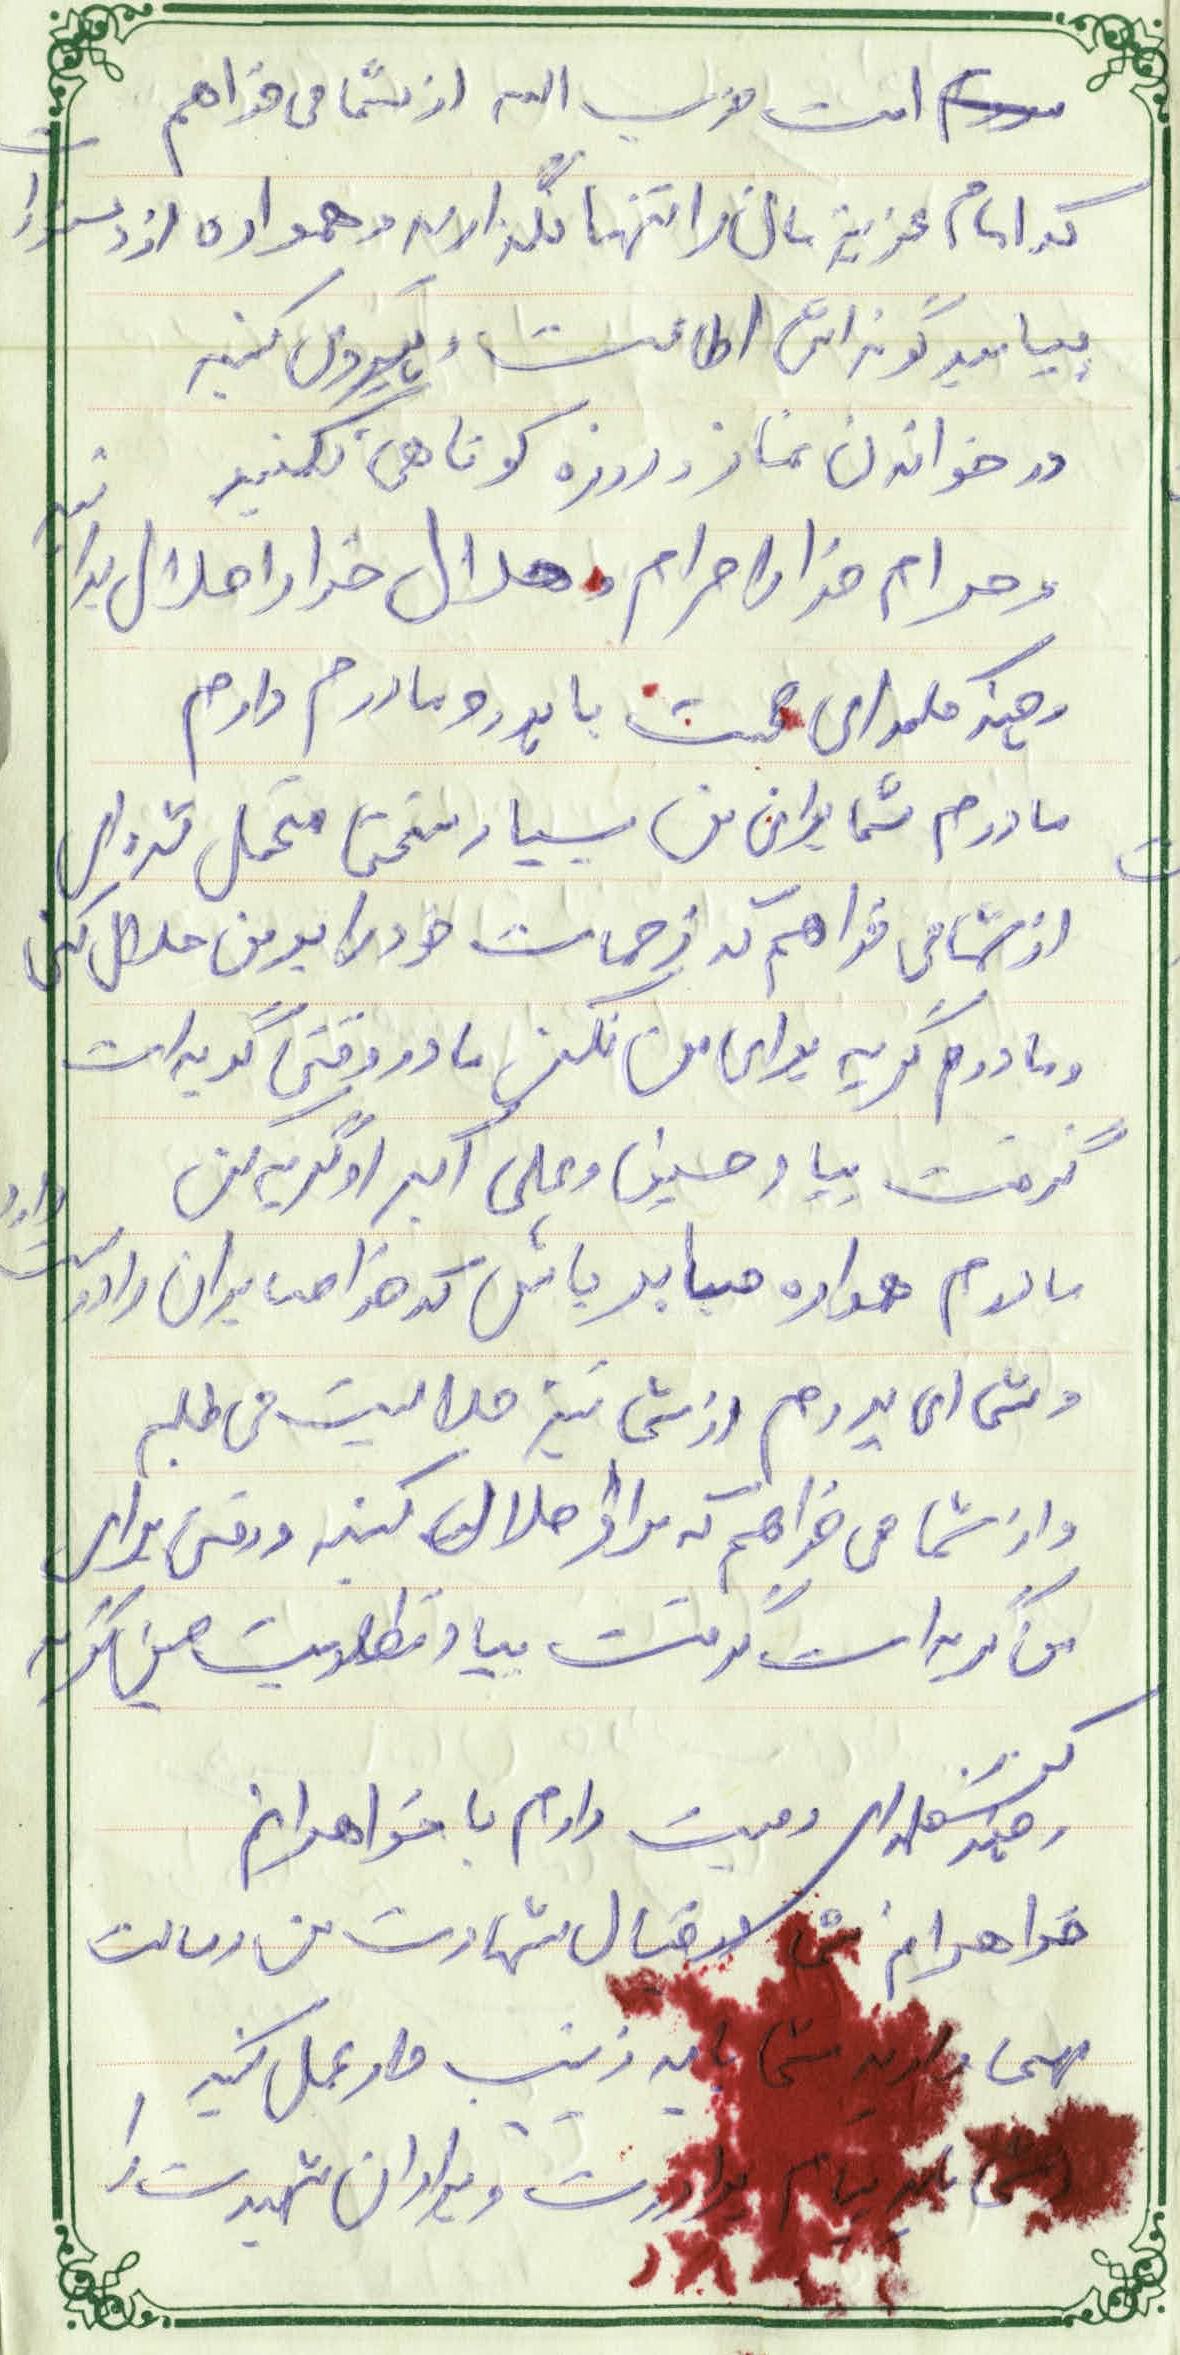 امت حزب الله از شما می خواهم
که امام عزیزمان را تنها نگذارید و همواره از دستورات
پیامبر گونه اش اطاعت و پیروی کنید
در خواندن نماز و روزه کوتاهی نکنید
و حرام خدا را حرام و حلال خدا را حلال بدانید
و چند کلمه ای صحبت با پدر و مادرم دارم
مادرم شما برای من بسیار سختی متحمل شده ای
از شما می خواهم که زحمات خود را بر من حلال کنی
و مادرم گریه برای من نکن مادر وقتی گریه ات
گرفت بیاد حسین و علی اکبر او گریه کن
مادرم همواره صبابر باش که خدا صابران را دوست دارد
و شما ای پدرم از شما نیز حلالیت می طلبم
و از شما می خواهم که مرا حلال کنید و وقتی برای
من گریه ات گرفت بیاد مظلومیت حسین گریه
کن
و چند کلمه ای وصیت دارم با خواهرانم
خواهرانم شما در قبال شهادت من رسالت
مهمی دارید شما باید زینب وار عمل کنید
و شما باید پیام برادرت و برادران شهیدت را